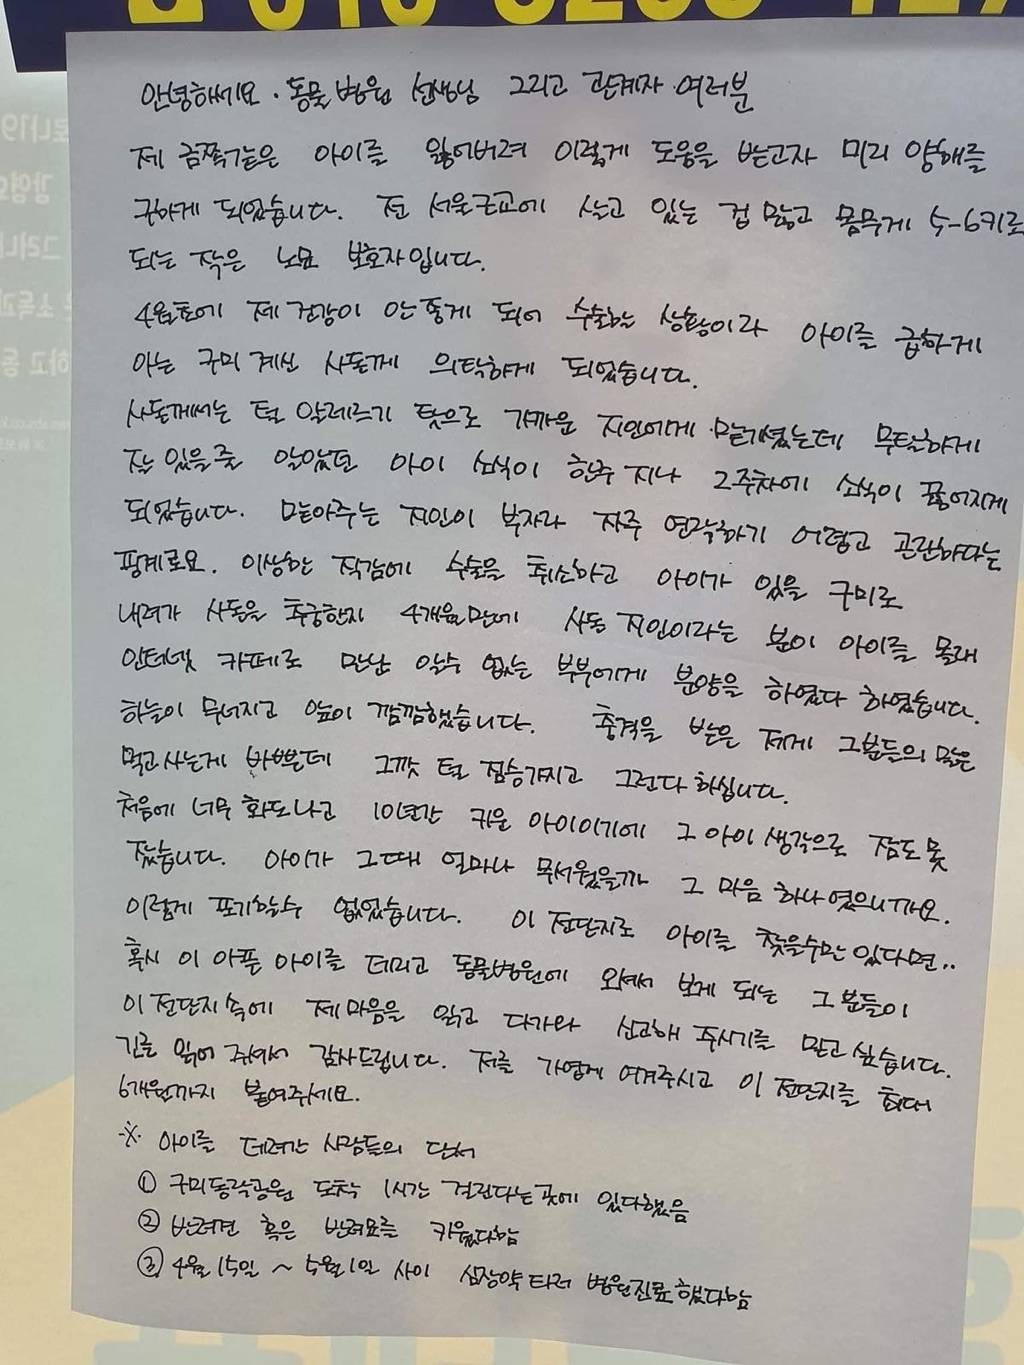 안녕하세요. 동물병원 선생님 그리고 관계자 여러분
제 금쪽같은 아이를 잃어버려 이렇게 도움을 받고자 미리 양해를
구하게 되었습니다. 전 서울근교에 살고 있는 겁 많고 몸무게 5-6키로
되는 작은 노묘 보호자입니다.
4월초에 제 건강이 안 좋게 되어 수술하는 상황이라 아이를 급하게
아는 구미 계신 사돈께 의탁하게 되었습니다.
사돈께서는 털 알레르기 탓으로 가까운 지인에게 맡기셨는데 무탈하게
잘 있을줄 알았던 아이 소식이 한주 지나 2주차에 소식이 끊어지게
되었습니다. 맡아주는 지인이 부자라 자주 연락하기 어렵고 곤란하다는
핑계로요. 이상한 직감에 수술을 취소하고 아이가 있을 구미로
내려가 사돈을 추궁한지 4개월만에 사돈 지인이라는 분이 아이를 몰래
인터넷 카페로 만난 알수 없는 부부에게 분양을 하였다 하였습니다.
하늘이 무너지고 앞이 깜깜했습니다. 충격을 받은 제게 그분들의 말은
먹고사는게 바쁜데 그깟 털 짐승가지고 그런다 하십니다.
처음에 너무 화도나고 10년간 키운 아이이기에 그 아이 생각으로 잠도 못
잤습니다. 아이가 그때 얼마나 무서웠을까 그 마음 하나였으니까요.
이렇게 포기할수 없었습니다. 이 전단지로 아이를 찾을수만 있다면..
혹시 이 아픈 아이를 데리고 동물병원에 오셔서 보게 되는 그 분들이
이 전단지 속에 제 마음을 읽고 다가와 신고해 주시기를 믿고 싶습니다.
긴글 읽어 주셔서 감사드립니다. 저를 가엽게 여겨주시고 이 전단지를 최대
6개월까지 붙여주세요.
※ 아이를 데려간 사람들의 단서
① 구미동락공원 도착 1시간 걸린다는곳에 있다했음
② 반려견 혹은 반려묘를 키웠다함
③ 4월 15일 ~ 5월 1일 사이 심장약 타러 병원진료했다함